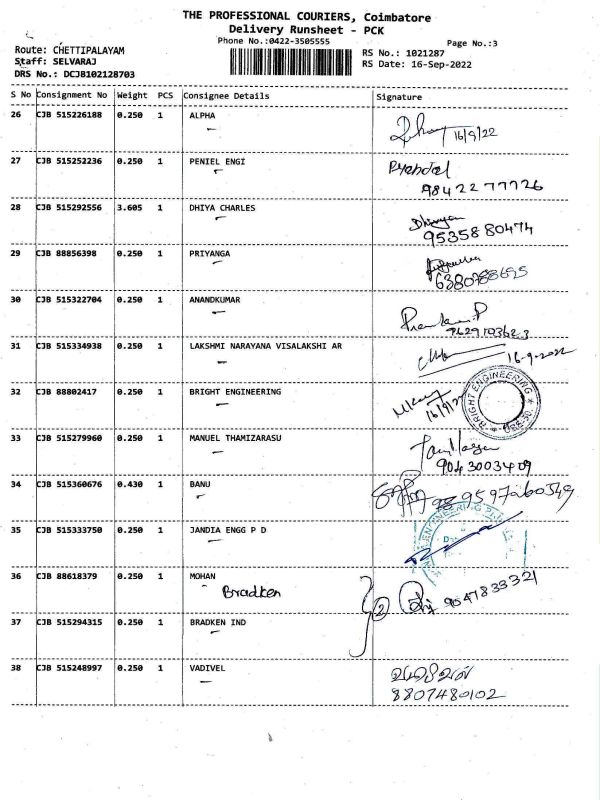 THE PROFESSIONAL COURIERS, Coimbatore
Delivery Runsheet - PCK
Phone No.:0422-3505555
Page No.:3
Route: CHETTIPALAYAM
Staff: SELVARAJ
DRS No.: DCJ8102128703
RS No.: 1021287
RS Date: 16-Sep-2022
S No Consignment No Weight PCS Consignee Details Signature
26 CJB 515226188 0.250 1 ALPHA
16/9/22
27 CJB 515252236 0.250 1 PENIEL ENGI
9842277726
28 CJB 515292556 3.605 1 DHIYA CHARLES
9535880474
29 CJB 88856398 0.250 1 PRIYANGA
6380788695
30 CJB 515322704 0.250 1 ANANDKUMAR
31 CJB 515334938 0.250 1 LAKSHMI NARAYANA VISALAKSHI AR
16-9-2022
32 CJB 88802417 0.250 1 BRIGHT ENGINEERING
16/9/22
BRIGHT ENGINEERING
33 CJB 515279960 0.250 1 MANUEL THAMIZARASU
9043003409
34 CJB 515360676 0.430 1 BANU
9597260349
35 CJB 515333750 0.250 1 JANDIA ENGG P D
ENGINEERING
36 CJB 88618379 0.250 1 MOHAN
Bradken
2
9047833321
37 CJB 515294315 0.250 1 BRADKEN IND
38 CJB 515248997 0.250 1 VADIVEL
வடிவேல்
8807480102